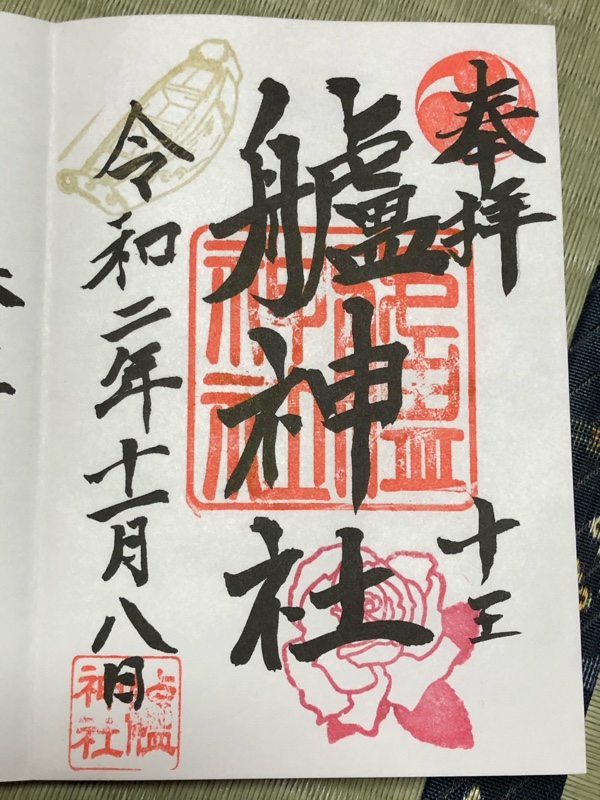 奉拝
十王
艫神社
艫神社
令和二年十一月八日
艫神社